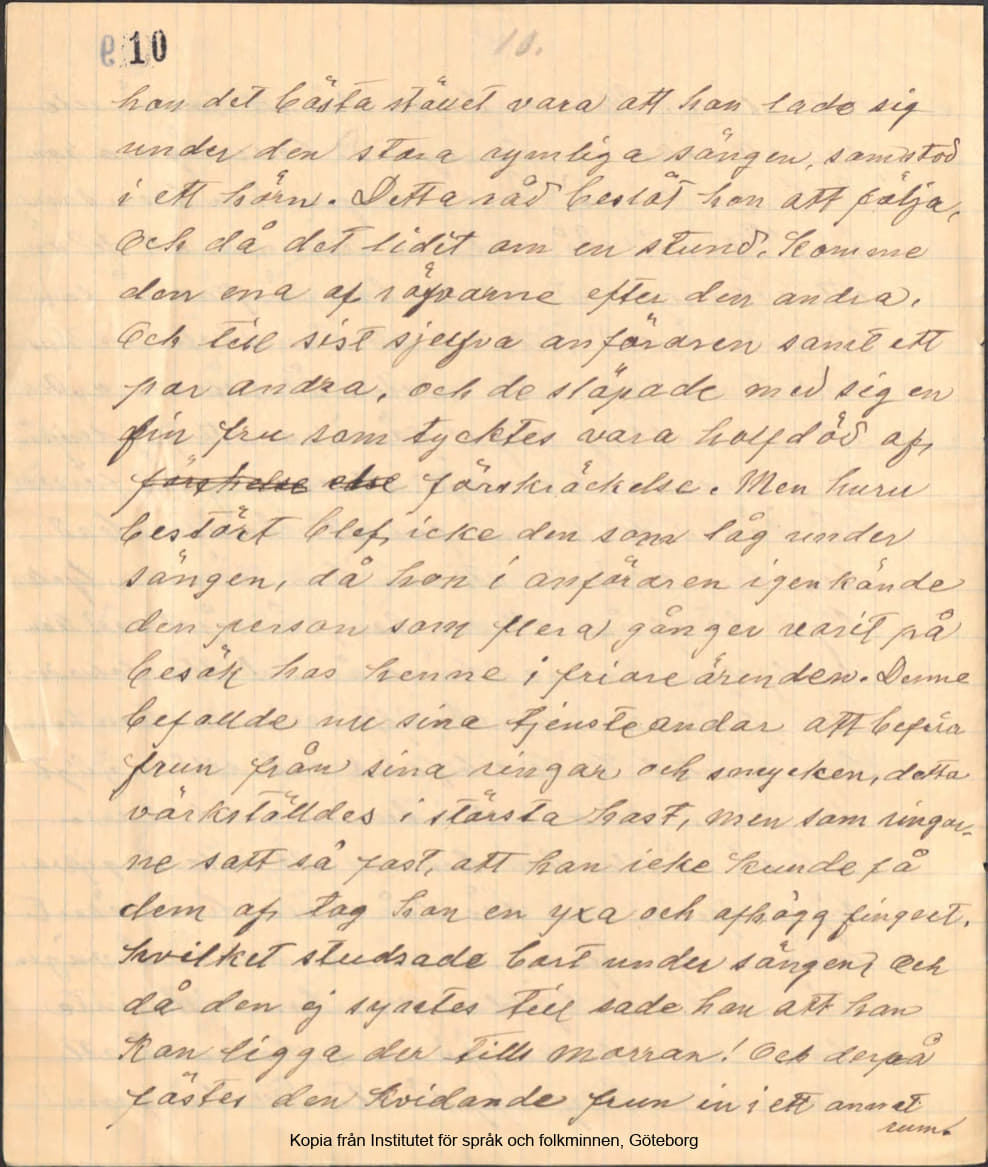 10
10.
hon det bästa stället vara att hon lade sig
under den stora rymliga sängen, som stod
i ett hörn. Detta råd beslöt hon att följa,
Och då det lidit om en stund. Komme
den ena af röfvarne efter den andra.
Och till sist sjelfva anföraren samt ett
par andra, och de släpade med sig en
fin fru som tycktes vara halfdöd af,
förskelse else förskräckelse. Men huru
bestört blef, icke den som låg under
sängen, då hon i anföraren igenkände
den person som flera gånger varit på
besök hos henne i friare ärenden. Denne
befallde nu sina tjensteandar att befria
frun från sina ringar och smycken, detta
värkställdes i största hast, men som ringar-
ne satt så fast, att han icke kunde få
dem af, tog han en yxa och afhögg fingret.
hvilket studsade bort under sängen, Och
då den ej syntes till sade han att han
kan ligga der tills morran! Och derpå
fästes den kvidande frun in i ett annat
rum.
Kopia från Institutet för språk och folkminnen, Göteborg